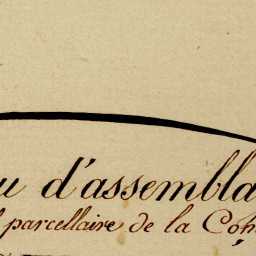 u d'assembla
l parcellaire de la Com